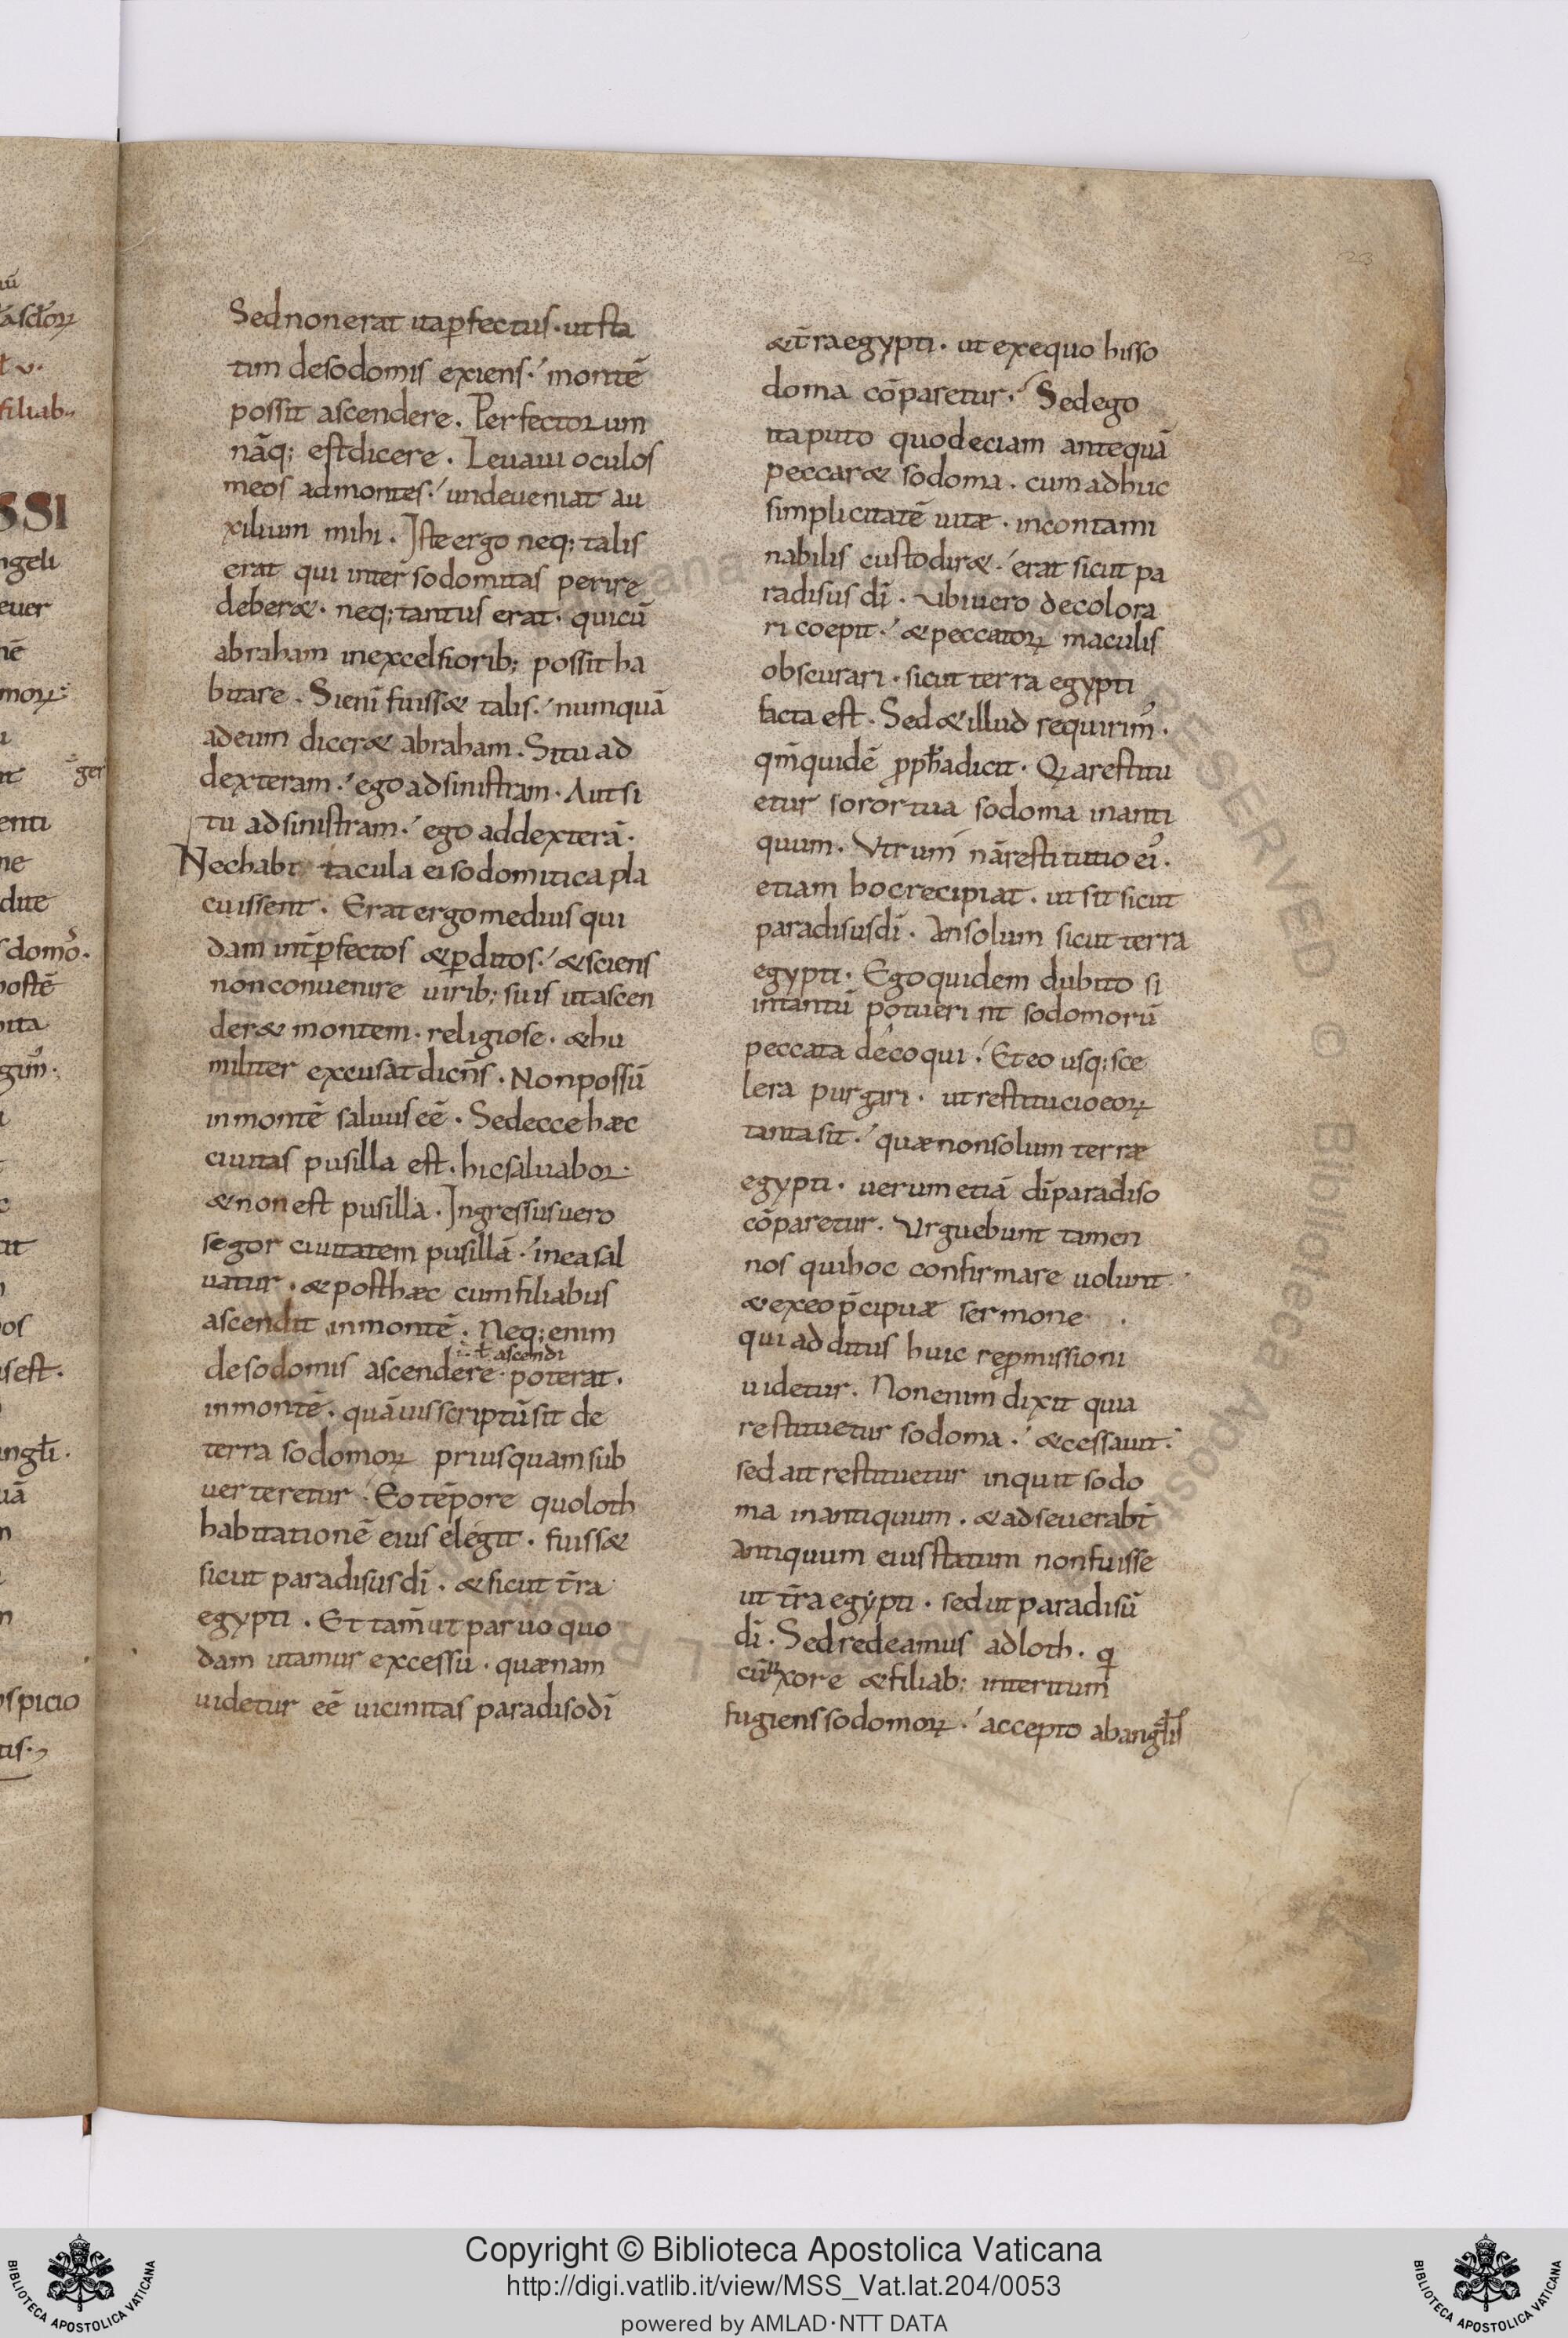 Sed non erat ita ꝑfectus · ut sta
tim de sodomis exiens ·' montē
possit ascendere . Perfectorum
nāq; est dicere . Leuaui oculos
meos ad montes ·' unde ueniat au
xilium mihi . Iste ergo neq; talis
erat qui inter sodomitas perire
deber& · neq; tantus erat · qui cū
abraham in excelsiorib; possit ha
bitare . Si eni fuiss& talis ·' numquā
ad eum dicer& abraham . Si tu ad
dexteram ·' ego ad sinistram . Aut si
tu ad sinistram ·' ego ad dexterā .
Nec habi tacula ei sodomitica pla
cuissent . Erat ergo medius qui
dam int̄ ꝑfectos & ꝑditos ·' & sciens
non conuenire uirib; suis ut ascen
der& montem · religiose · & hu
militer excusat dicn̄s . Non possū
in montē saluus eē . Sed ecce hæc
ciuitas pusilla est . hic saluabor ·
& non est pusilla . Ingressus uero
segor ciuitatem pusillā ·' in ea sal
uatur . & post hæc cum filiabus
ascendit in montē . Neq; enim
ł ascendi
de sodomis ascendere poterat .
in montē . quāuis scriptū sit de
terra sodomoꝝ priusquam sub
uerteretur . Eo tēpore quo loth
habitationē eius elegit . fuiss&
sicut paradisus dī . & sicut t̄ra
egypti . Et tam̄ ut paruo quo
dam utamur excessu . quænam
uidetur eē uicinitas paradiso dī
& t̄ra egypti . ut ex equo his so
doma cōparetur ·' Sed ego
ita puto quod eciam antequā
peccar& sodoma . cum adhuc
simplicitatē uitæ . incontami
nabilis custodir& ·' erat sicut pa
radisus dī . Ubi uero decolora
ri coepit ·' & peccatoꝝ maculis
obscurari . sicut terra egypti
facta est . Sed & illud requirim᾿ .
qm̄ quidē ꝓph̄a dicit . Qꝛ a restitu
etur soror tua sodoma in anti
quum . Vtrum nā restitutio ei᾿ .
etiam hoc recipiat . ut sit sicut
paradisus dī . An solum sicut terra
egypti . Ego quidem dubito si
in tantū potueri nt sodomorū
peccata decoqui ·' Et eo usq; sce
lera purgari . ut restitucio eoꝝ
tanta sit ·' quæ non solum terræ
egypti . uerum etiā dī paradiso
cōparetur . Vrguebunt tamen
nos qui hoc confirmare uolunt .
& ex eo p̄cipuæ sermone .
qui additus huic reꝓmissioni
uidetur . Non enim dixit quia
restituetur sodoma ·' & cessauit ·'
sed ait restituetur inquit sodo
ma in antiquum . & adseuerabt̄
antiquum eius statum non fuisse
ut t̄ra egypti . sed ut paradisū
dī . Sed redeamus ad loth . q
cū uxore & filiab; interitum
fugiens sodomoꝝ ·' accepto ab angl̄is
SSI
Copyright © Biblioteca Apostolica Vaticana
http://digi.vatlib.it/view/MSS_Vat.lat.204/0053
powered by AMLAD·NTT DATA
BIBLIOTECA APOSTOLICA VATICANA
BIBLIOTECA APOSTOLICA VATICANA